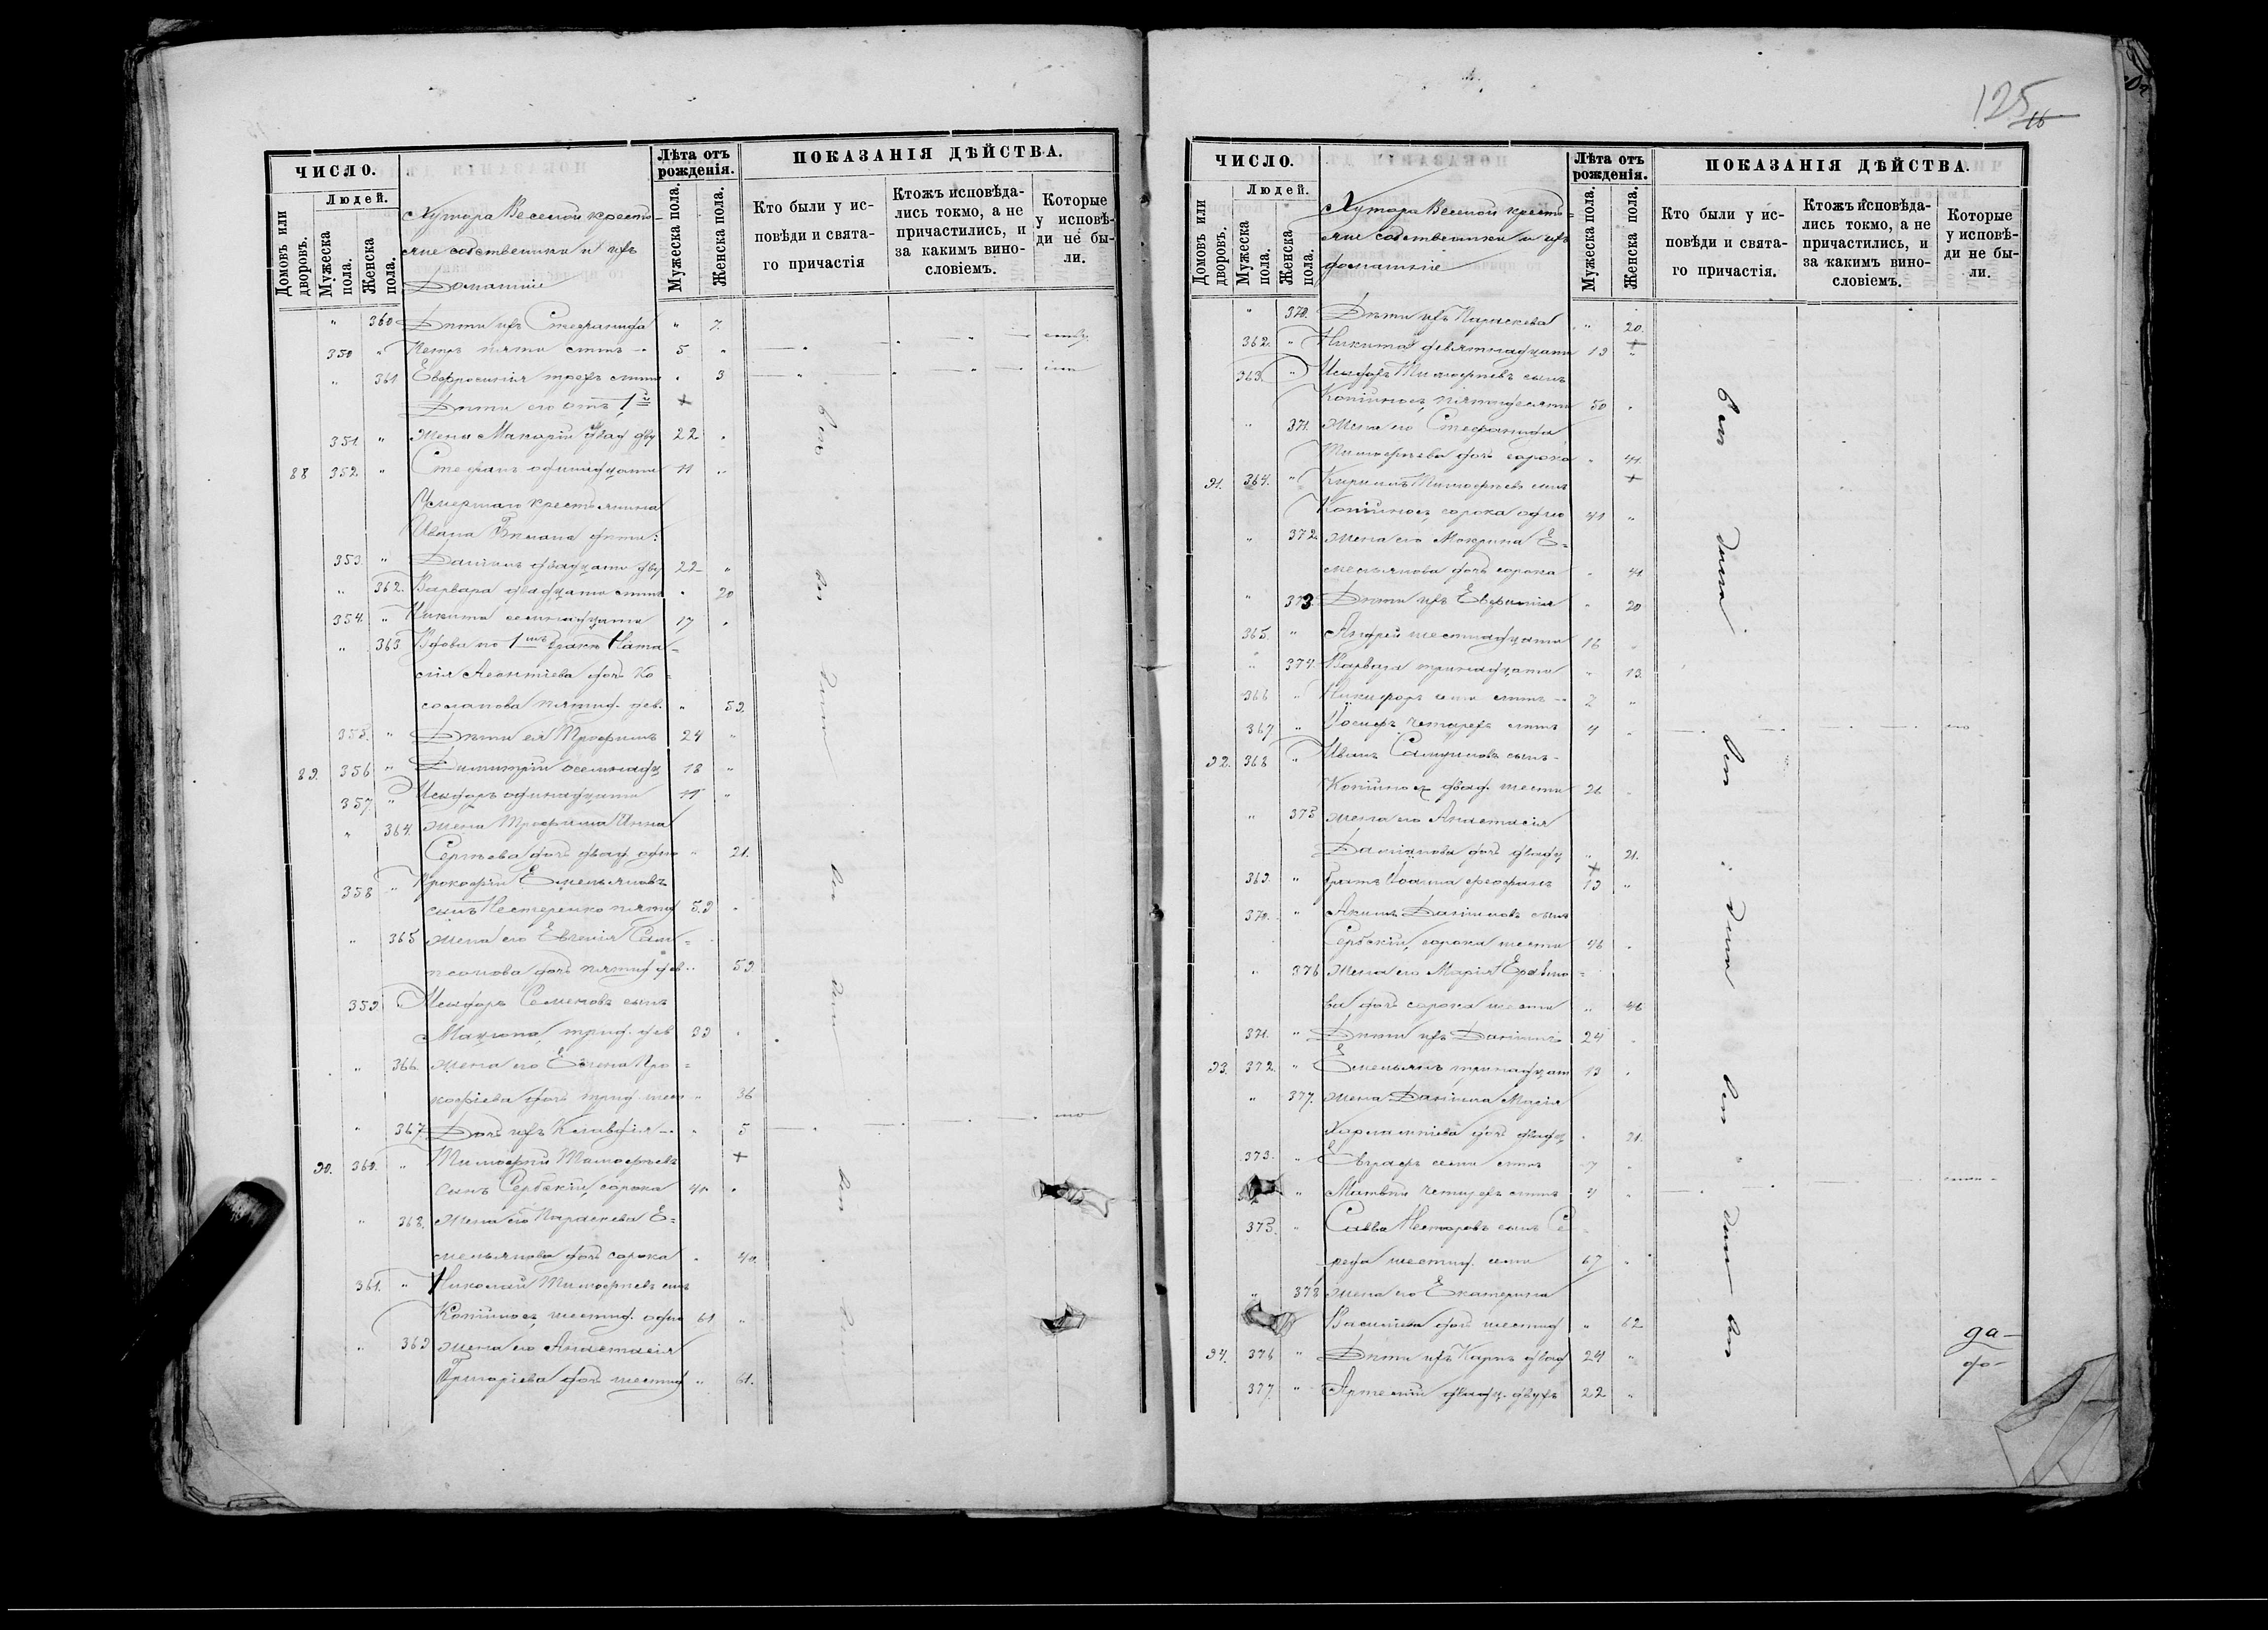 125
16
ЧИСЛО.
Лѣта отъ рожденія.
ПОКАЗАНІЯ ДѢЙСТВА.
Домовъ или дворовъ.
Людей.
Мужеска пола.
Женска пола.
Хутора Веселой кресть-
яне собственники и ихъ
Домашніе
Мужеска пола.
Женска пола.
Кто были у ис-
повѣди и свята-
го причастія
Ктожъ исповѣда-
лись токмо, а не
причастились, и
за какимъ вино-
словіемъ.
Которые
у исповѣ-
ди не бы-
ли.
" 360 Дѣти ихъ Стефанида " 7.
350 " Петръ пяти лѣтъ 5 "
" 361 Евфросинія трехъ лѣтъ " 3
Дѣти его отъ 1й
351. " жены Макарій двад. дву 22 "
88 352. " Стефанъ одинадцати 11 "
Умершаго крестьянина
Ивана дѣти:
353. " Даніилъ двадцати дву 22 "
" 362. Варвара двадцати лѣтъ " 20
354. " Никита семнадцати 17 "
" 363 Вдова по 1мъ бракѣ Ната-
лія Леонтіева дочь Ко-
солапова пятид. дев. " 59.
355. " Дѣти ея Трофимъ 24 "
89. 356 " Димитрій осемнадц 18 "
357. " Исидоръ одинадцати 11 "
" 364. жена Трофима Анна
Сергѣева дочь двад. одно " 21.
358 " Прокофій Емельяновъ
сынъ Нестеренко пятид 59 "
" 365 жена его Евгенія Сам-
псонова дочь пятид дев " 59.
359 " Исидоръ Семеновъ сынъ
трид. дев 39 "
" 366. жена его Елена Про-
кофіева дочь трид. шест " 36
" 367. Дочь ихъ Клавдія " 5
90. 360. " Тимофей Тимофеевъ
сынъ Сербскій, сорока 40 "
" 368. жена его Параскева Е-
мельянова дочь сорока " 40.
361. " Николай Тимофеевъ сынъ
шестид. одно 61 "
" 369 жена его Анастасія
Григоріева дочь шестид " 61.
ЧИСЛО.
Лѣта отъ рожденія.
ПОКАЗАНІЯ ДѢЙСТВА.
Домовъ или дворовъ.
Людей.
Мужеска пола.
Женска пола.
Хутора Веселой кресть-
яне собственники и ихъ
домашніе
Мужеска пола.
Женска пола.
Кто были у ис-
повѣди и свята-
го причастія.
Ктожъ исповѣда-
лись токмо, а не
причастились, и
за какимъ вино-
словіемъ.
Которые
у исповѣ-
ди не бы-
ли.
" 370. Дѣти ихъ Параскева " 20.
362. " Никита девятнадцати 19 "
363. " Исидоръ Тимофеевъ сынъ
пятидесяти 50 "
" 371. жена его Стефанида
Тимофеева дочь сорока " 41.
91. 364. " Кириллъ Тимофеевъ сынъ
сорока одно 41 "
" 372. жена его Мокрина Е-
мельянова дочь сорока " 41.
" 373. Дѣти ихъ Евфимія " 20
365. " Андрей шестнадцати 16 "
" 374. Варвара тринадцати " 13.
366 " Никифоръ семи лѣтъ 7 "
367 " Іосифъ четырехъ лѣтъ 4 "
92. 368 " Иванъ Самуиловъ сынъ
двад. шести 26 "
" 375 жена его Анастасія
Даміанова дочь двадц " 21.
369. " Братъ Іоанна Феофанъ 19 "
370. " Акимъ Даніиловъ сынъ
Сербскій, сорока шести 46 "
" 376 жена его Марія
ва дочь сорока шести " 46
371. " Дѣти ихъ Даніилъ 24 "
93. 372. " Емельянъ тринадцати 13 "
" 377. жена Даніила Марія
Харлампіева дочь двадц " 21.
373. " Евграфъ семи лѣтъ 7 "
" Матвѣй четырехъ лѣтъ 4 "
375. " Савва Несторовъ сынъ Се-
реда шестид. семи 67 "
" 378 жена его Екатерина
Василіева дочь шестид " 62
94. 376 " Дѣти ихъ Карпъ двад 24 "
377. " Артемій двадц. двухъ 22 "